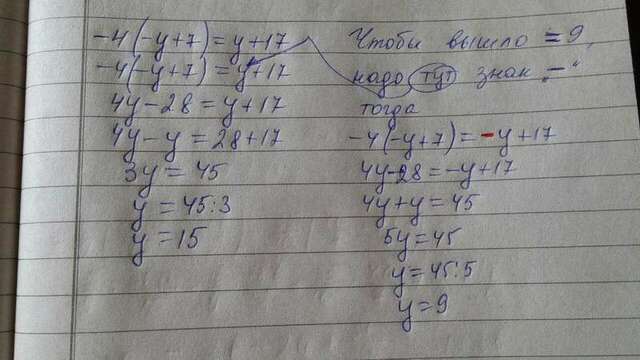 -4(-y+7)=y+17
-4(-y+7)=y+17
4y-28=y+17
4y-y=28+17
3y=45
y=45:3
y=15
Чтобы вышло =9,
надо тут знак „-"
тогда
-4(-y+7)=-y+17
4y-28=-y+17
4y+y=45
5y=45
y=45:5
y=9